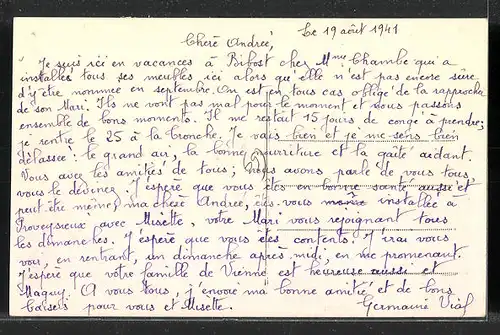 Le 19 août 1941
Cherè Andrée,
Je suis ici en vacances à Bibost chez Mme Chambe qui a
installée tous ses meubles ici alors qu'elle n'est pas encore sûre
d'y être nommée en septembre. On est en tous cas obligé de la rapprocher
de son Mari. Ils ne vont pas mal pour le moment et nous passons
ensemble de bons moments. Il me restait 15 jours de congé à prendre;
je rentre le 25 à la tronche. Je vais bien et je me sens bien
délassée: le grand air, la bonne nourriture et la gaîté aidant.
Vous avez les amitiés de tous; nous avons parlé de vous tous,
vous le devinez. J'espère que vous êtes en bonne santé aussi et
peut être même, ma cherè Andrée, êtes-vous installée à
Proveysieux avec Misette, votre Mari vous rejoignant tous
les dimanches. J'espère que vous êtes contents. J'irai vous
voir, en rentrant, un dimanche après midi, en me promenant.
J'espère que votre famille de Vienne est heureuse aussi et
Maguy. A vous tous, j'envoie ma bonne amitié et de bons
baisers pour vous et Misette. Germaine Vial